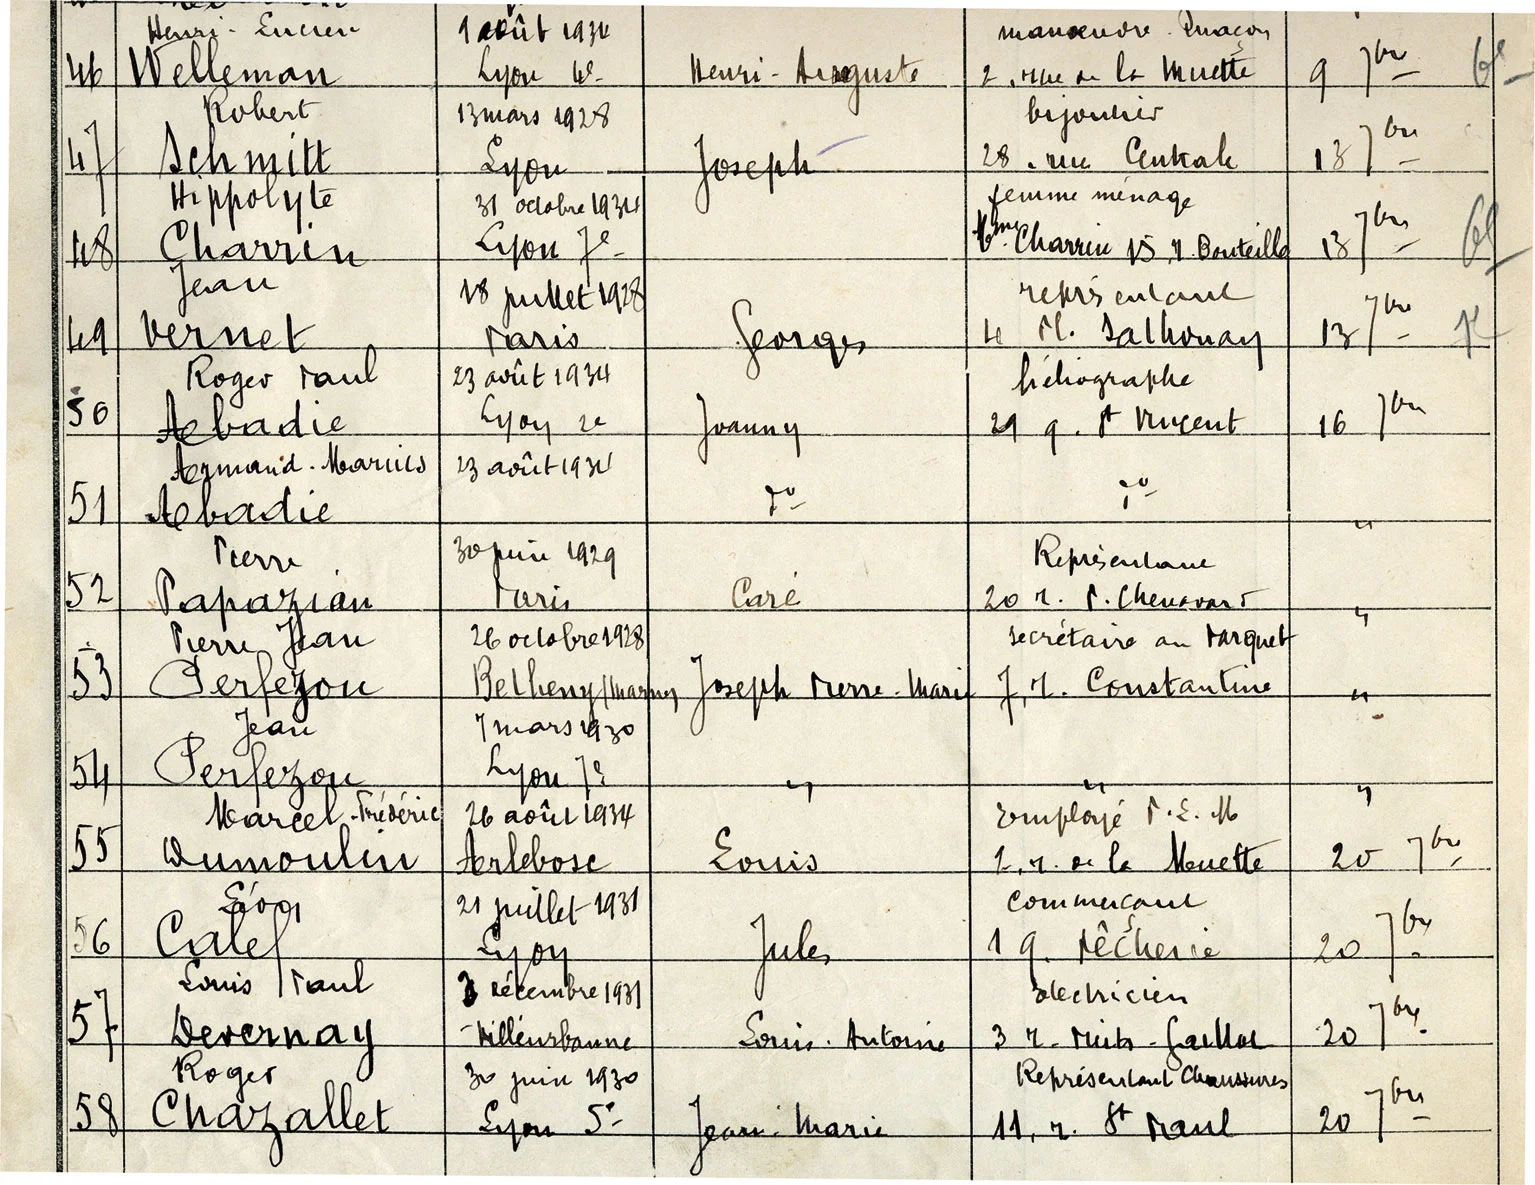 Henri-Lucien 1 août 1934 manœuvre-maçon
46 Welleman Lyon 4e Henri-Auguste 2, rue de la Muette 9 7bre 6e
Robert 13 mars 1928 bijoutier
47 Schmitt Lyon Joseph 28, rue Centrale 13 7bre
Hippolyte 31 octobre 1934 femme ménage
48 Charrin Lyon 7e Mme Charrin 15, r. Bouteille 13 7bre 6e
Jean 18 juillet 1928 représentant
49 Vernet Paris Georges 4 Pl. Sathonay 13 7bre
Roger Paul 23 août 1934 héliographe
50 Abadie Lyon 2e Joanny 29 q. St Vincent 16 7bre
Armand-Marius 23 août 1934
51 Abadie do do "
Pierre 30 juin 1929 Représentant
52 Papazian Paris Caré 20 r. P. Chenavard "
Pierre Jean 26 octobre 1928 secrétaire au Parquet
53 Perfezou Betheny (Marne) Joseph Pierre-Marie 7, r. Constantine "
Jean 7 mars 1930
54 Perfezou Lyon 7e " " "
Marcel-Frédéric 26 août 1934 Employé P.L.M
55 Dumoulin Arlebosc Louis 2, r. de la Muette 20 7bre
Léon 21 juillet 1931 commerçant
56 Calef Lyon Jules 1 q. Pêcherie 20 7bre
Louis Paul 3 décembre 1931 électricien
57 Devernay Villeurbanne Louis-Antoine 3 r. Puits-Gaillot 20 7bre
Roger 30 juin 1930 Représentant Chaussures
58 Chazallet Lyon 5e Jean-Marie 11, r. St Paul 20 7bre